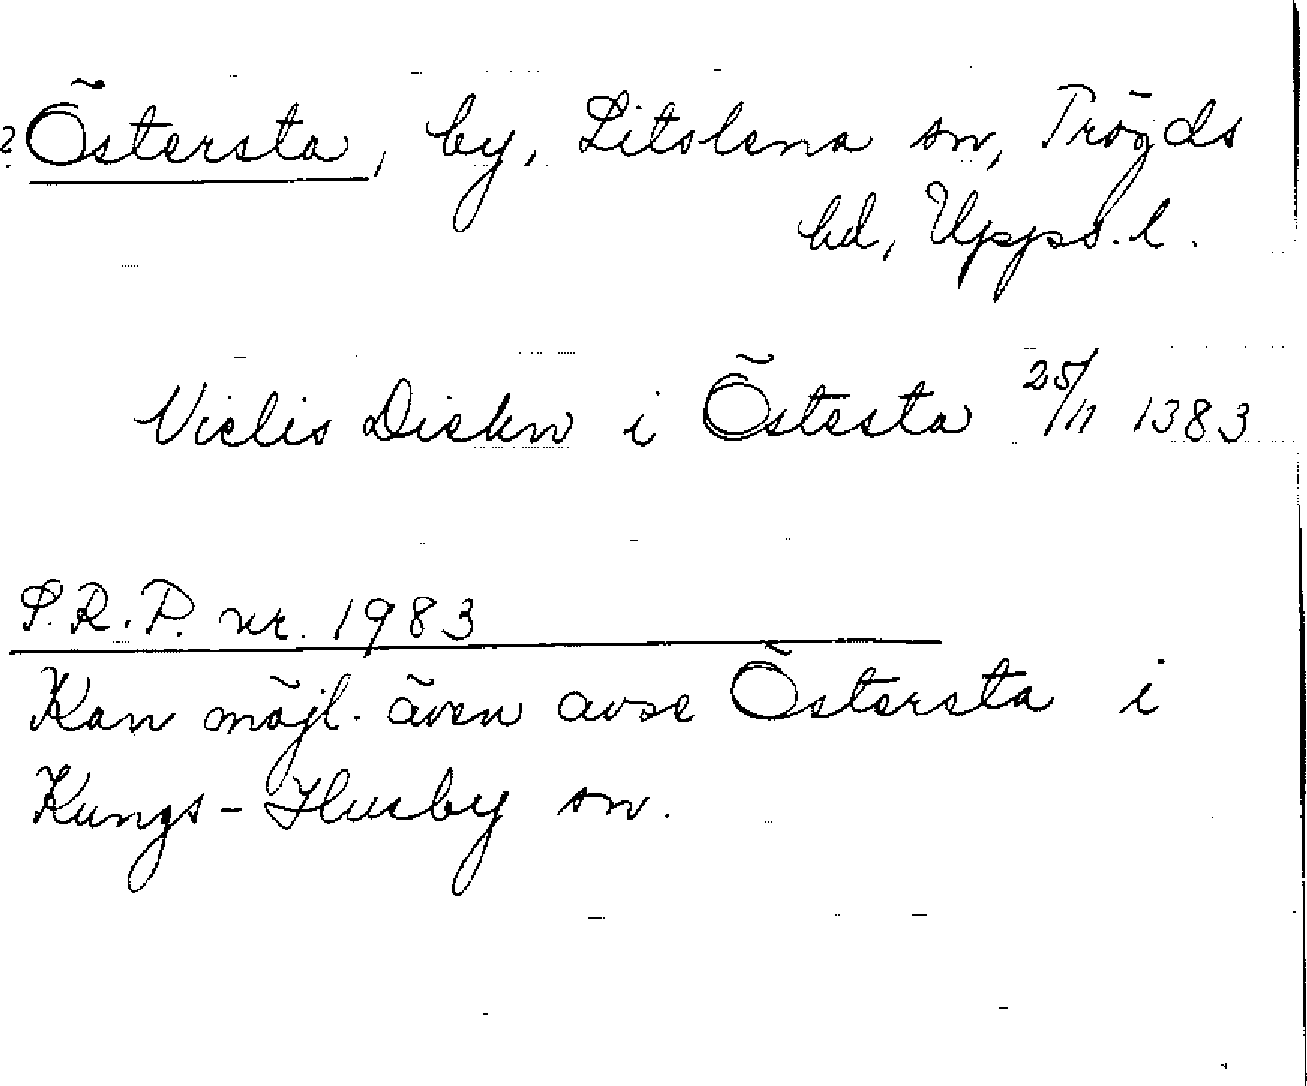 ? Östersta, by, Litslena sn, Trögds
hd, Upps. l.
Niclis Diekn i Östesta 25/11 1383
S.R.P. nr. 1983
Kan möjl. även avse Östersta i
Kungs-Husby sn.